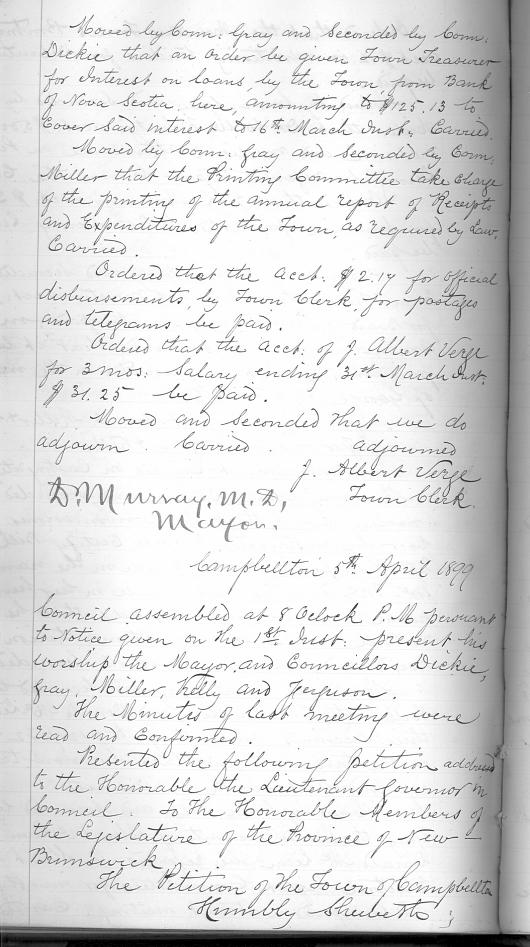 Moved by Conn: Gray and Seconded by Conn:
Dickie that an order be given Town Treasurer
for Interest on loans, by the Town, from Bank
of Nova Scotia here, amounting to $125.13 to
Cover said interest to 16th March Inst; Carried.
Moved by Conn: Gray and Seconded by Conn:
Miller that the Printing Committee take charge
of the printing of the annual report of Receipts
and Expenditures of the Town, as required by Law.
Carried.
Ordered that the acct: $2.17 for official
disbursements, by Town Clerk, for postages
and telegrams be paid.
Ordered that the acct: of J. Albert Verge
for 3 mos: Salary ending 31st March Inst:
$31.25 be paid.
Moved and Seconded that we do
adjourn. Carried. adjourned
J. Albert Verge
Town Clerk.
D. Murray, M.D,
Mayor.
Campbellton 5th April 1899
Council assembled at 8 Oclock P.M persuant
to Notice given on the 1st Inst: present his
worship the Mayor, and Councillors Dickie,
Gray, Miller, Kelly and Ferguson.
The Minutes of last meeting were
read and Confirmed.
Presented the following petition addressed
to the Honorable the Lieutenant Governor in
Council. To The Honorable Members of
the Legislature of the Province of New
Brunswick
The Petition of the Town of Campbellton
Humbly Sheweth;